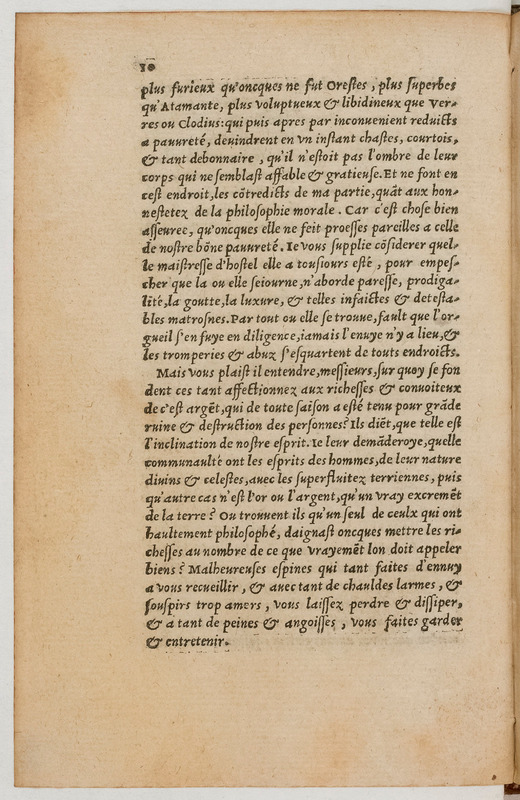 10
plus furieux qu'oncques ne fut Orestes, plus superbes
qu'Atamante, plus voluptueux & libidineux que Ver-
res ou Clodius: qui puis apres par inconuenient reduicts
a pauureté, deuindrent en vn instant chastes, courtois,
& tant debonnaire, qu'il n'estoit pas l'ombre de leur
corps qui ne semblast affable & gratieuse. Et ne font en
cest endroit, les cõtredicts de ma partie, quãt aux hon-
nestetez de la philosophie morale. Car c'est chose bien
asseuree, qu'oncques elle ne feit proesses pareilles a celle
de nostre bõne pauureté. Ie vous supplie cõsiderer quel-
le maistresse d'hostel elle a tousiours esté, pour empes-
cher que la ou elle seiourne, n'aborde paresse, prodiga-
lité, la goutte, la luxure, & telles infaictes & detesta-
bles matrosnes. Par tout ou elle se trouue, fault que l'or-
gueil s'en fuye en diligence, iamais l'enuye n'y a lieu, &
les tromperies & abuz s'esquartent de touts endroicts.
Mais vous plaist il entendre, messieurs, sur quoy se fon
dent ces tant affectionnez aux richesses & conuoiteux
de c'est argẽt, qui de toute saison a esté tenu pour grãde
ruine & destruction des personnes? Ils diẽt, que telle est
l'inclination de nostre esprit. Ie leur demãderoye, quelle
communaulté ont les esprits des hommes, de leur nature
diuins & celestes, auec les superfluitez terriennes, puis
qu'autre cas n'est l'or ou l'argent, qu'un vray excremẽt
de la terre? Ou trouuent ils qu'un seul de ceulx qui ont
haultement philosophé, daignast oncques mettre les ri-
chesses au nombre de ce que vrayemẽt lon doit appeler
biens? Malheureuses espines qui tant faites d'ennuy
a vous recueillir, & auec tant de chauldes larmes, &
souspirs trop amers, vous laissez perdre & dissiper,
& a tant de peines & angoisses, vous faites garder
& entretenir.